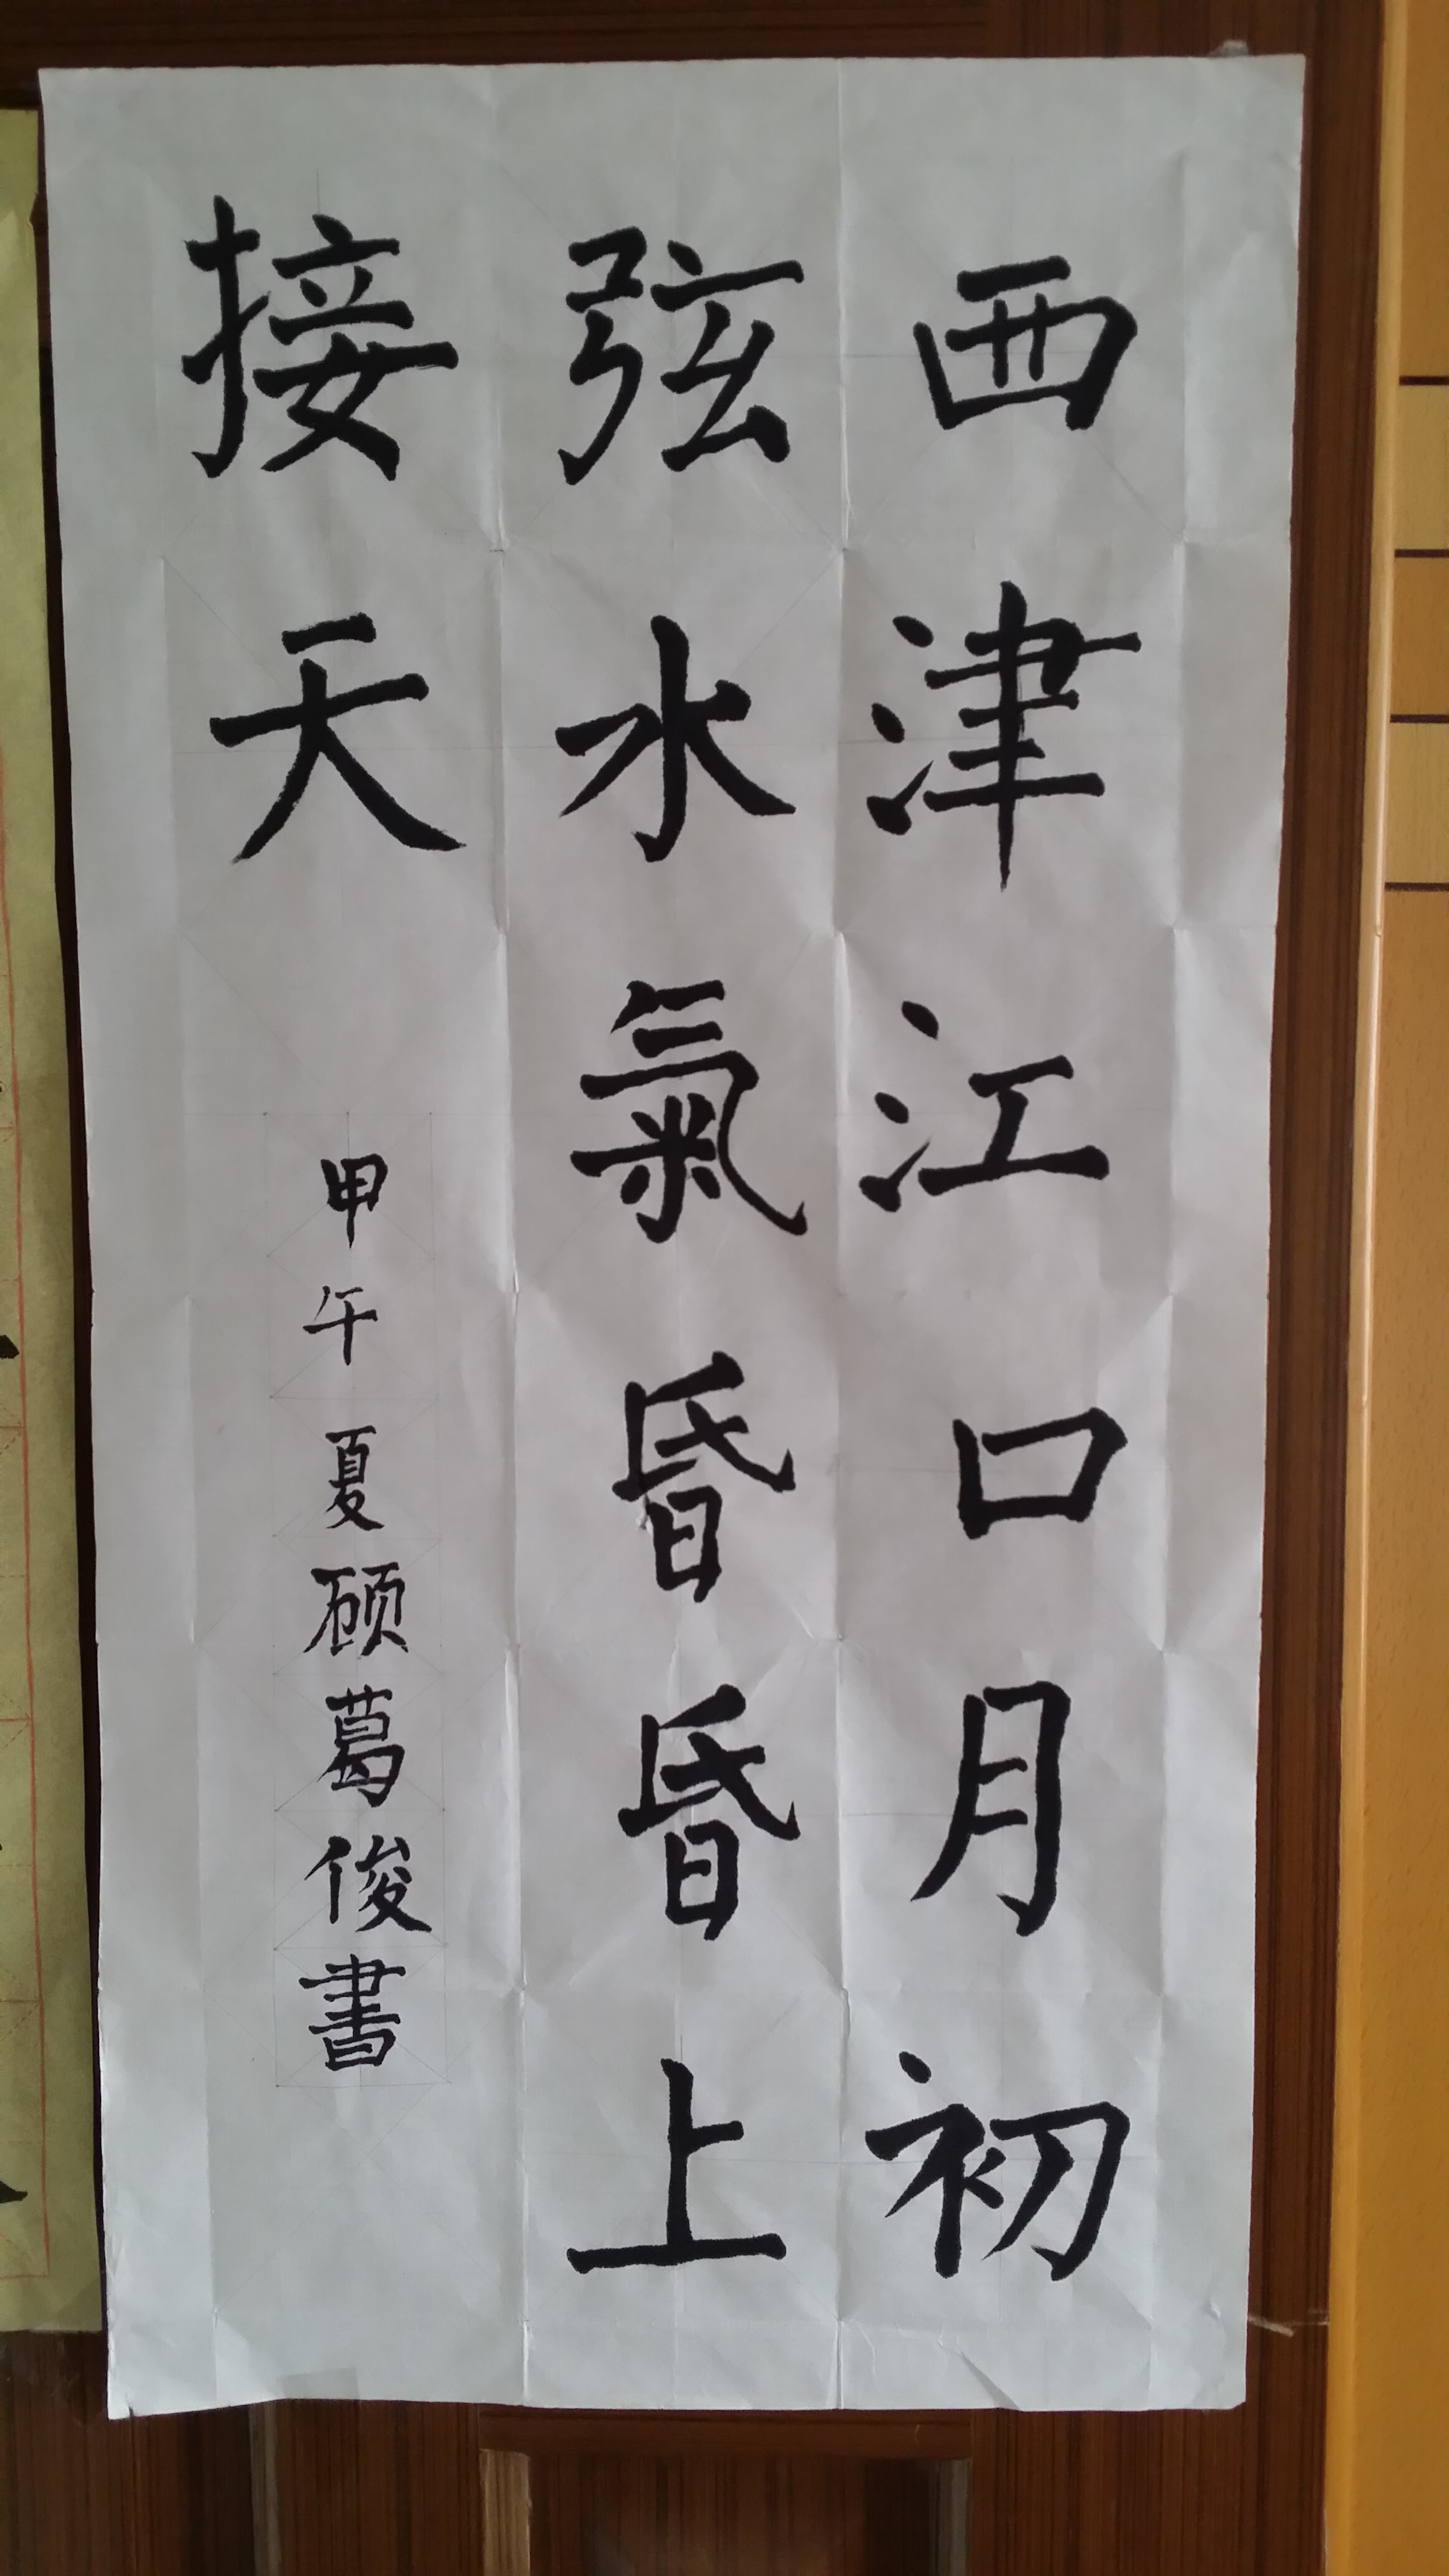 西津江口月初
弦水氣昏昏上
接天
甲午夏顾葛俊書